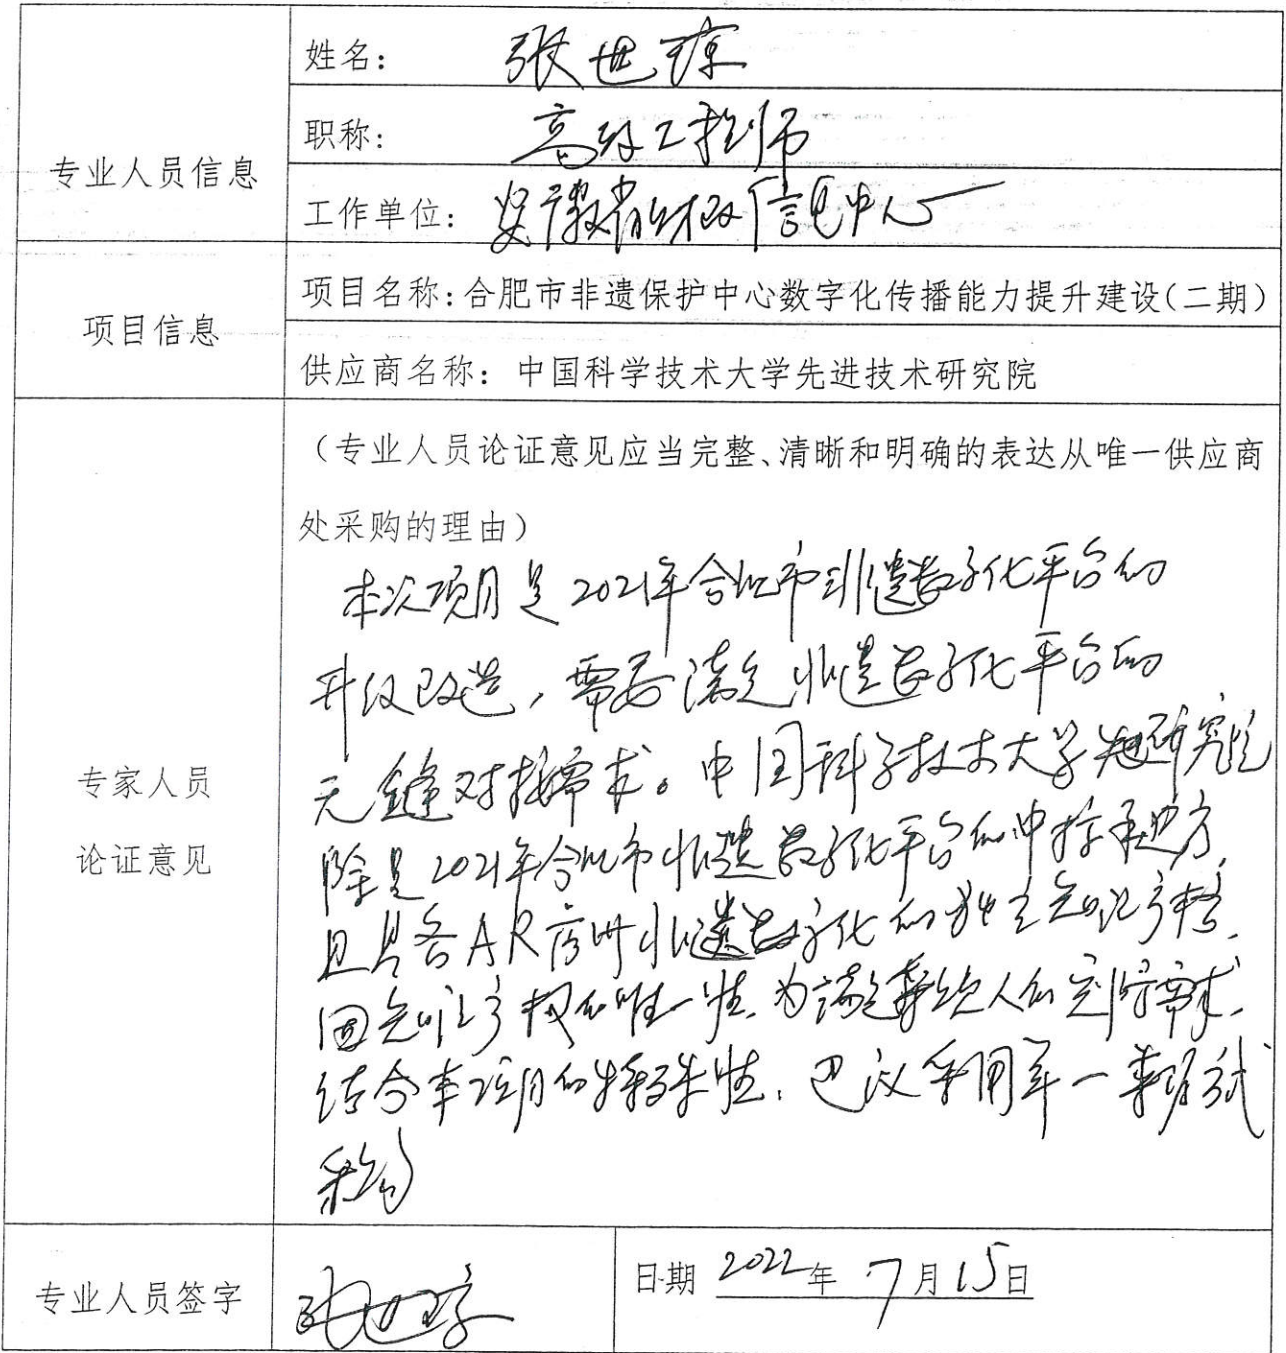 姓名： 张世琼
职称： 高级工程师
专业人员信息
工作单位： 安徽省财政信息中心
项目名称：合肥市非遗保护中心数字化传播能力提升建设（二期）
项目信息
供应商名称：中国科学技术大学先进技术研究院
（专业人员论证意见应当完整、清晰和明确的表达从唯一供应商
处采购的理由）
本次项目是2021年合肥市非遗数字化平台的
升级改造，需要满足非遗数字化平台的
无缝对接需求。中国科学技术大学先研究院
专家人员
论证意见
除是2021年合肥市非遗数字化平台的中标承建方，
且具备AR 非遗数字化的独立知识产权，
因知识产权的唯一性，为满足采购人的实际需求，
结合本项目的特殊性，建议采用单一来源方式
采购
专业人员签字
张世琼
日期 2022年 7月15日